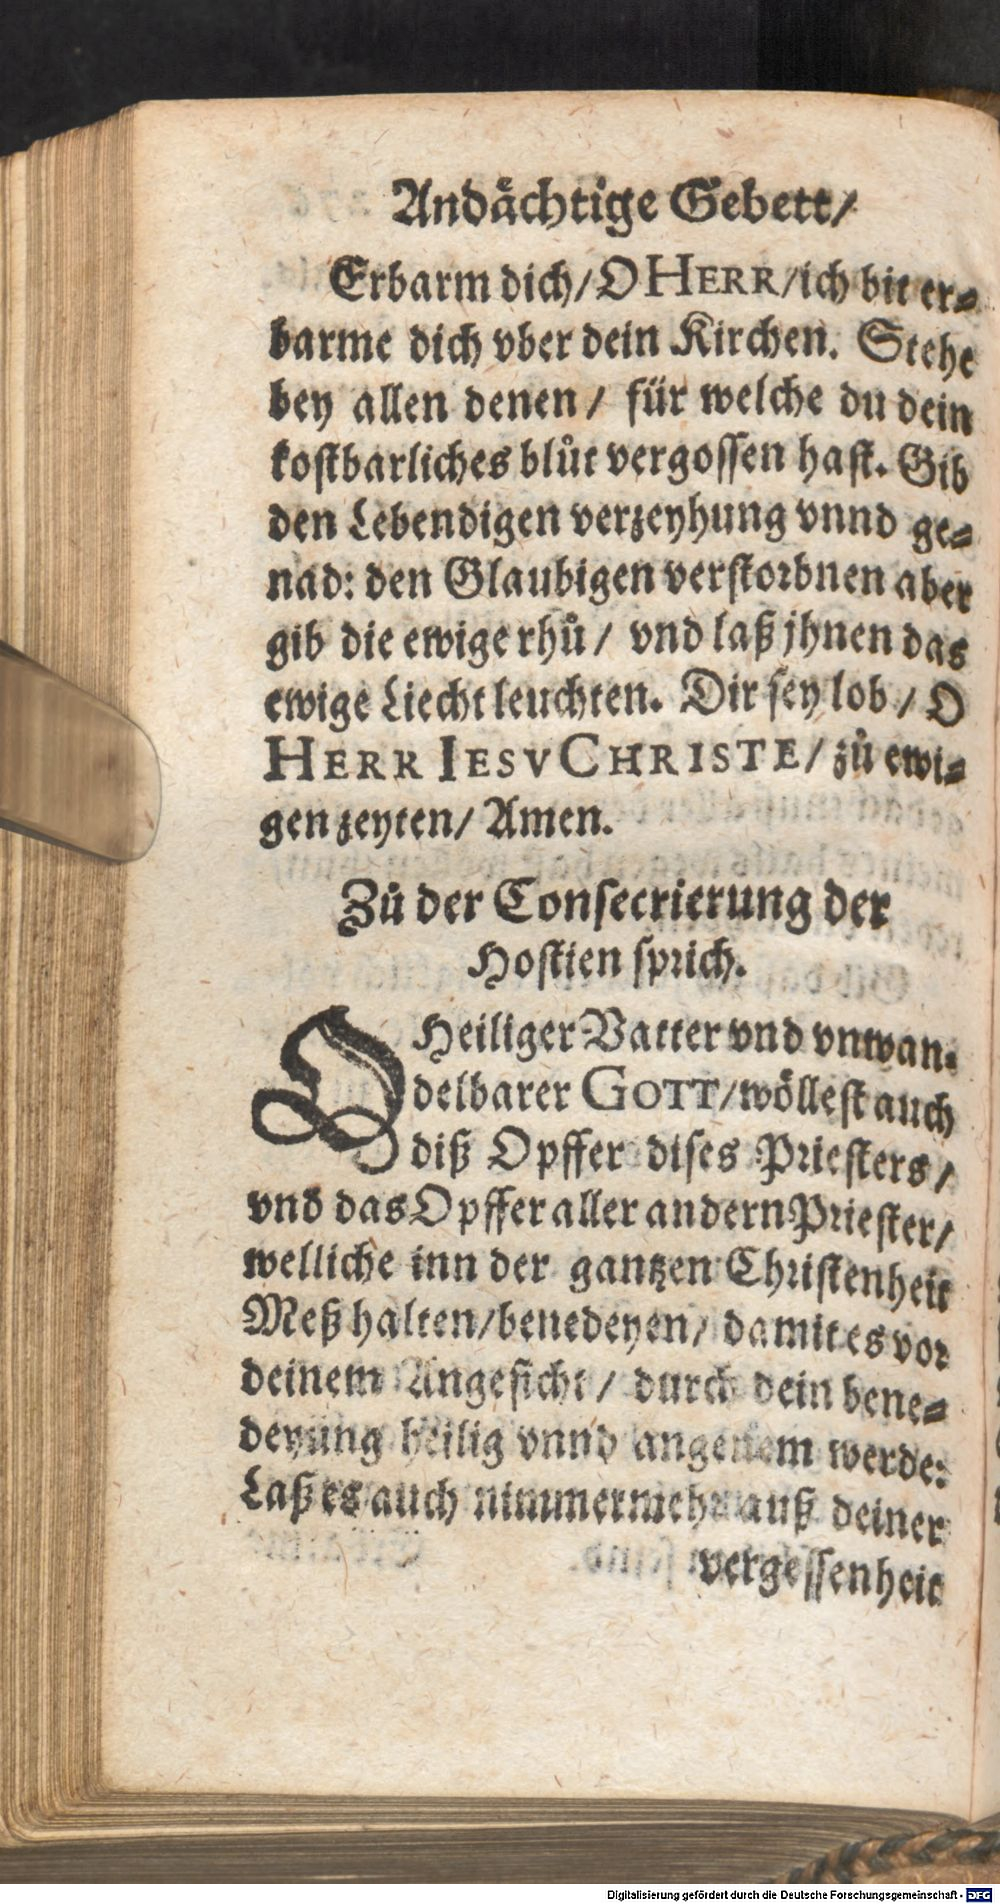 Andåchtige Gebett/
Erbarm dich/ O HERR/ ich bit er=
barme dich vber dein Kirchen. Stehe
bey allen denen / für welche du dein
kostbarliches blůt vergossen hast. Gib
den Lebendigen verzeyhung vnnd ge=
nad: den Glaubigen verstorbnen aber
gib die ewige rhů / vnd laß jhnen das
ewige Liecht leuchten. Dir sey lob / O
HERR IESV CHRISTE / zů ewi=
gen zeyten/ Amen.
Zů der Consecrierung der
Hostien sprich.
O Heiliger Vatter vnd vnwan=
delbarer GOTT/ wöllest auch
diß Opffer dises Priesters /
vnd das Opffer aller andern Priester/
welliche inn der gantzen Christenheit
Meß halten/ benedeyen/ damit es vor
deinem Angesicht / durch dein bene=
deyung heilig vnnd angenem werde:
Laß es auch nimmermehr auß deiner
vergessenheit
Digitalisierung gefördert durch die Deutsche Forschungsgemeinschaft - DFG